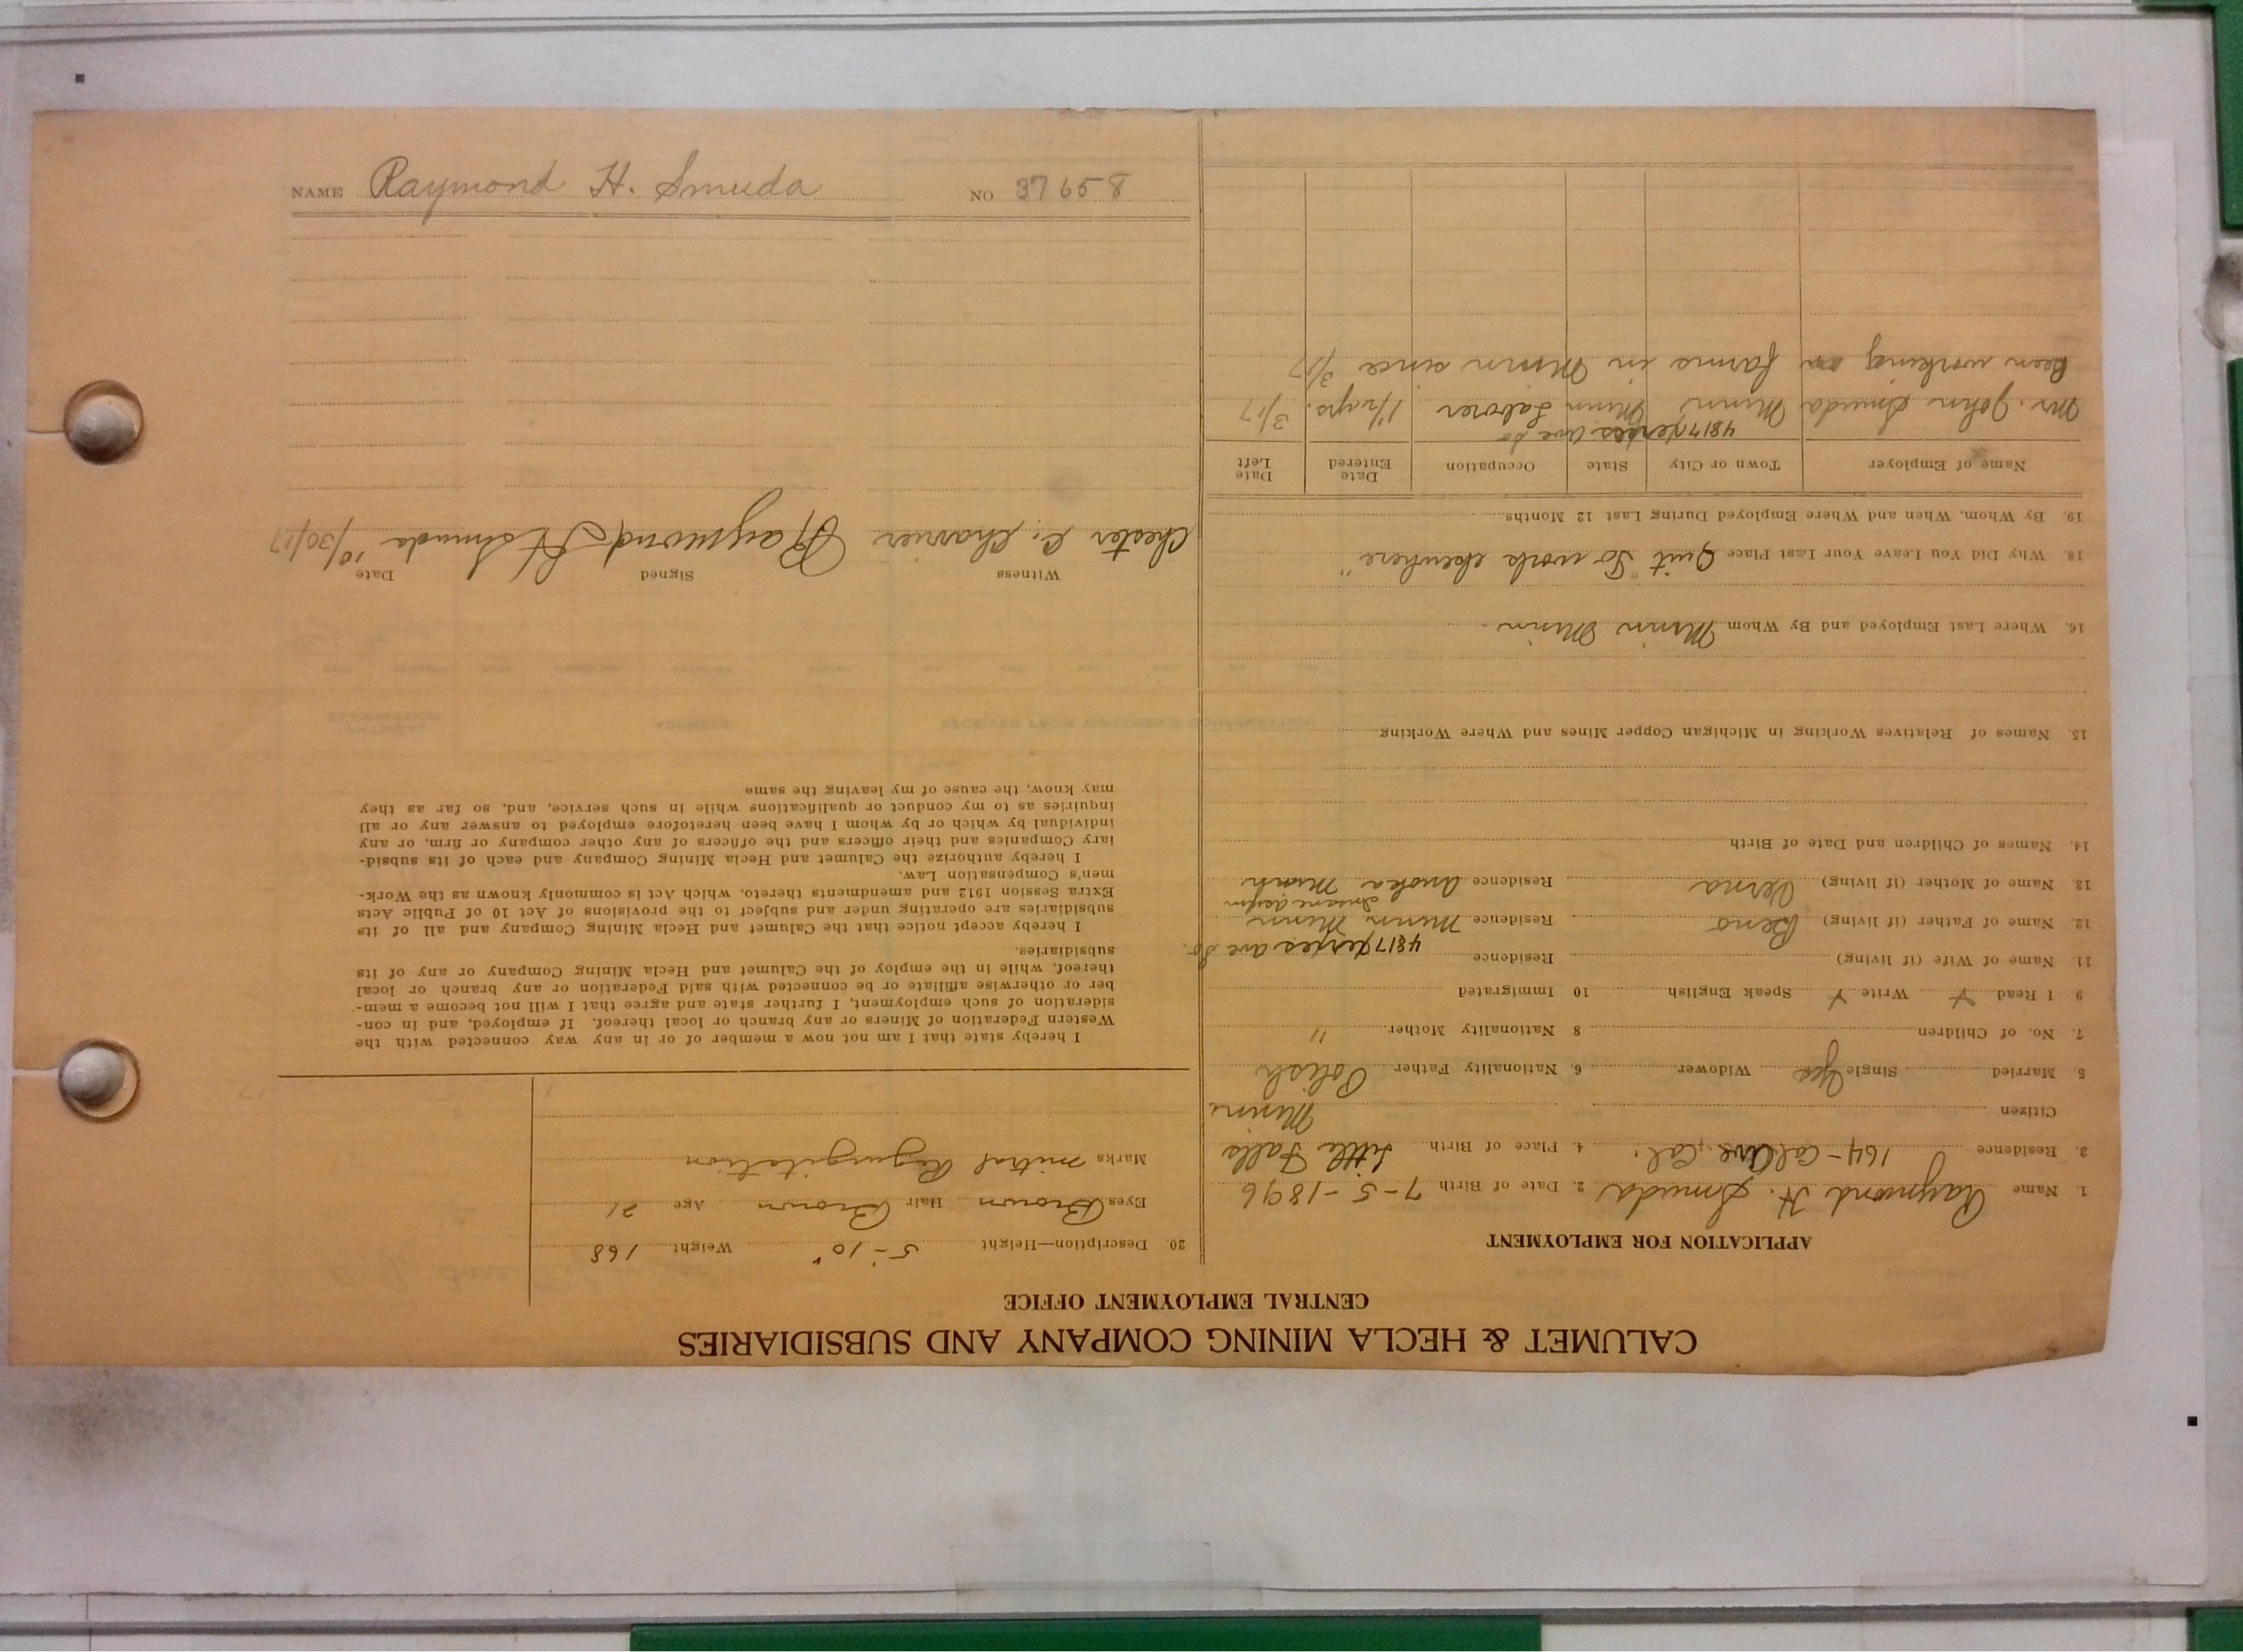 CALUMET & HECLA MINING COMPANY AND SUBSIDIARIES
CENTRAL EMPLOYMENT OFFICE
APPLICATION FOR EMPLOYMENT
1. Name Raymond H. Smuda 2. Date of Birth 7-5-1896
3. Residence 164 - Cal Ave, Cal. 4. Place of Birth Little Falls
Citizen Minn
5. Married Single Yes Widower 6. Nationality Father Polish
7. No. of Children 8 Nationality Mother "
9 I Read Y Write Y Speak English 10 Immigrated
11. Name of Wife (if living) Residence
4817 Xerxes ave So.
12. Name of Father (if living) Residence Minn Minn
Insane asylm
13. Name of Mother (if living) Verna Residence Anoka
14. Names of Children and Date of Birth
15. Names of Relatives Working in Michigan Copper Mines and Where Working
16. Where Last Employed and By Whom Minn Minn.
18. Why Did You Leave Your Last Place Quit "To work elsewhere"
19. By Whom, When and Where Employed During Last 12 Months
Name of Employer Town or City State Occupation Date Entered Date Left
4817 Xerxes ave So
Mr. John Smuda Minn Minn Laborer 1½ yrs. 3/17
Been working on farms in Minn since 3/17
20. Description—Height 5'-10" Weight 168
Eyes Brown Hair Brown Age 21
Marks mitral Regurgitation
I hereby state that I am not now a member of or in any way connected with the
Western Federation of Miners or any branch or local thereof. If employed, and in con-
sideration of such employment, I further state and agree that I will not become a mem-
ber or otherwise affiliate or be connected with said Federation or any branch or local
thereof, while in the employ of the Calumet and Hecla Mining Company or any of its
subsidiaries.
I hereby accept notice that the Calumet and Hecla Mining Company and all of its
subsidiaries are operating under and subject to the provisions of Act 10 of Public Acts
Extra Session 1912 and amendments thereto, which Act is commonly known as the Work-
men's Compensation Law.
I hereby authorize the Calumet and Hecla Mining Company and each of its subsid-
iary Companies and their officers and the officers of any other company or firm, or any
individual by which or by whom I have been heretofore employed to answer any or all
inquiries as to my conduct or qualifications while in such service, and, so far as they
may know, the cause of my leaving the same
Witness Signed Date
Chester C. Charrier Raymond H Smuda 10/30/17
NAME Raymond H. Smuda NO 37658